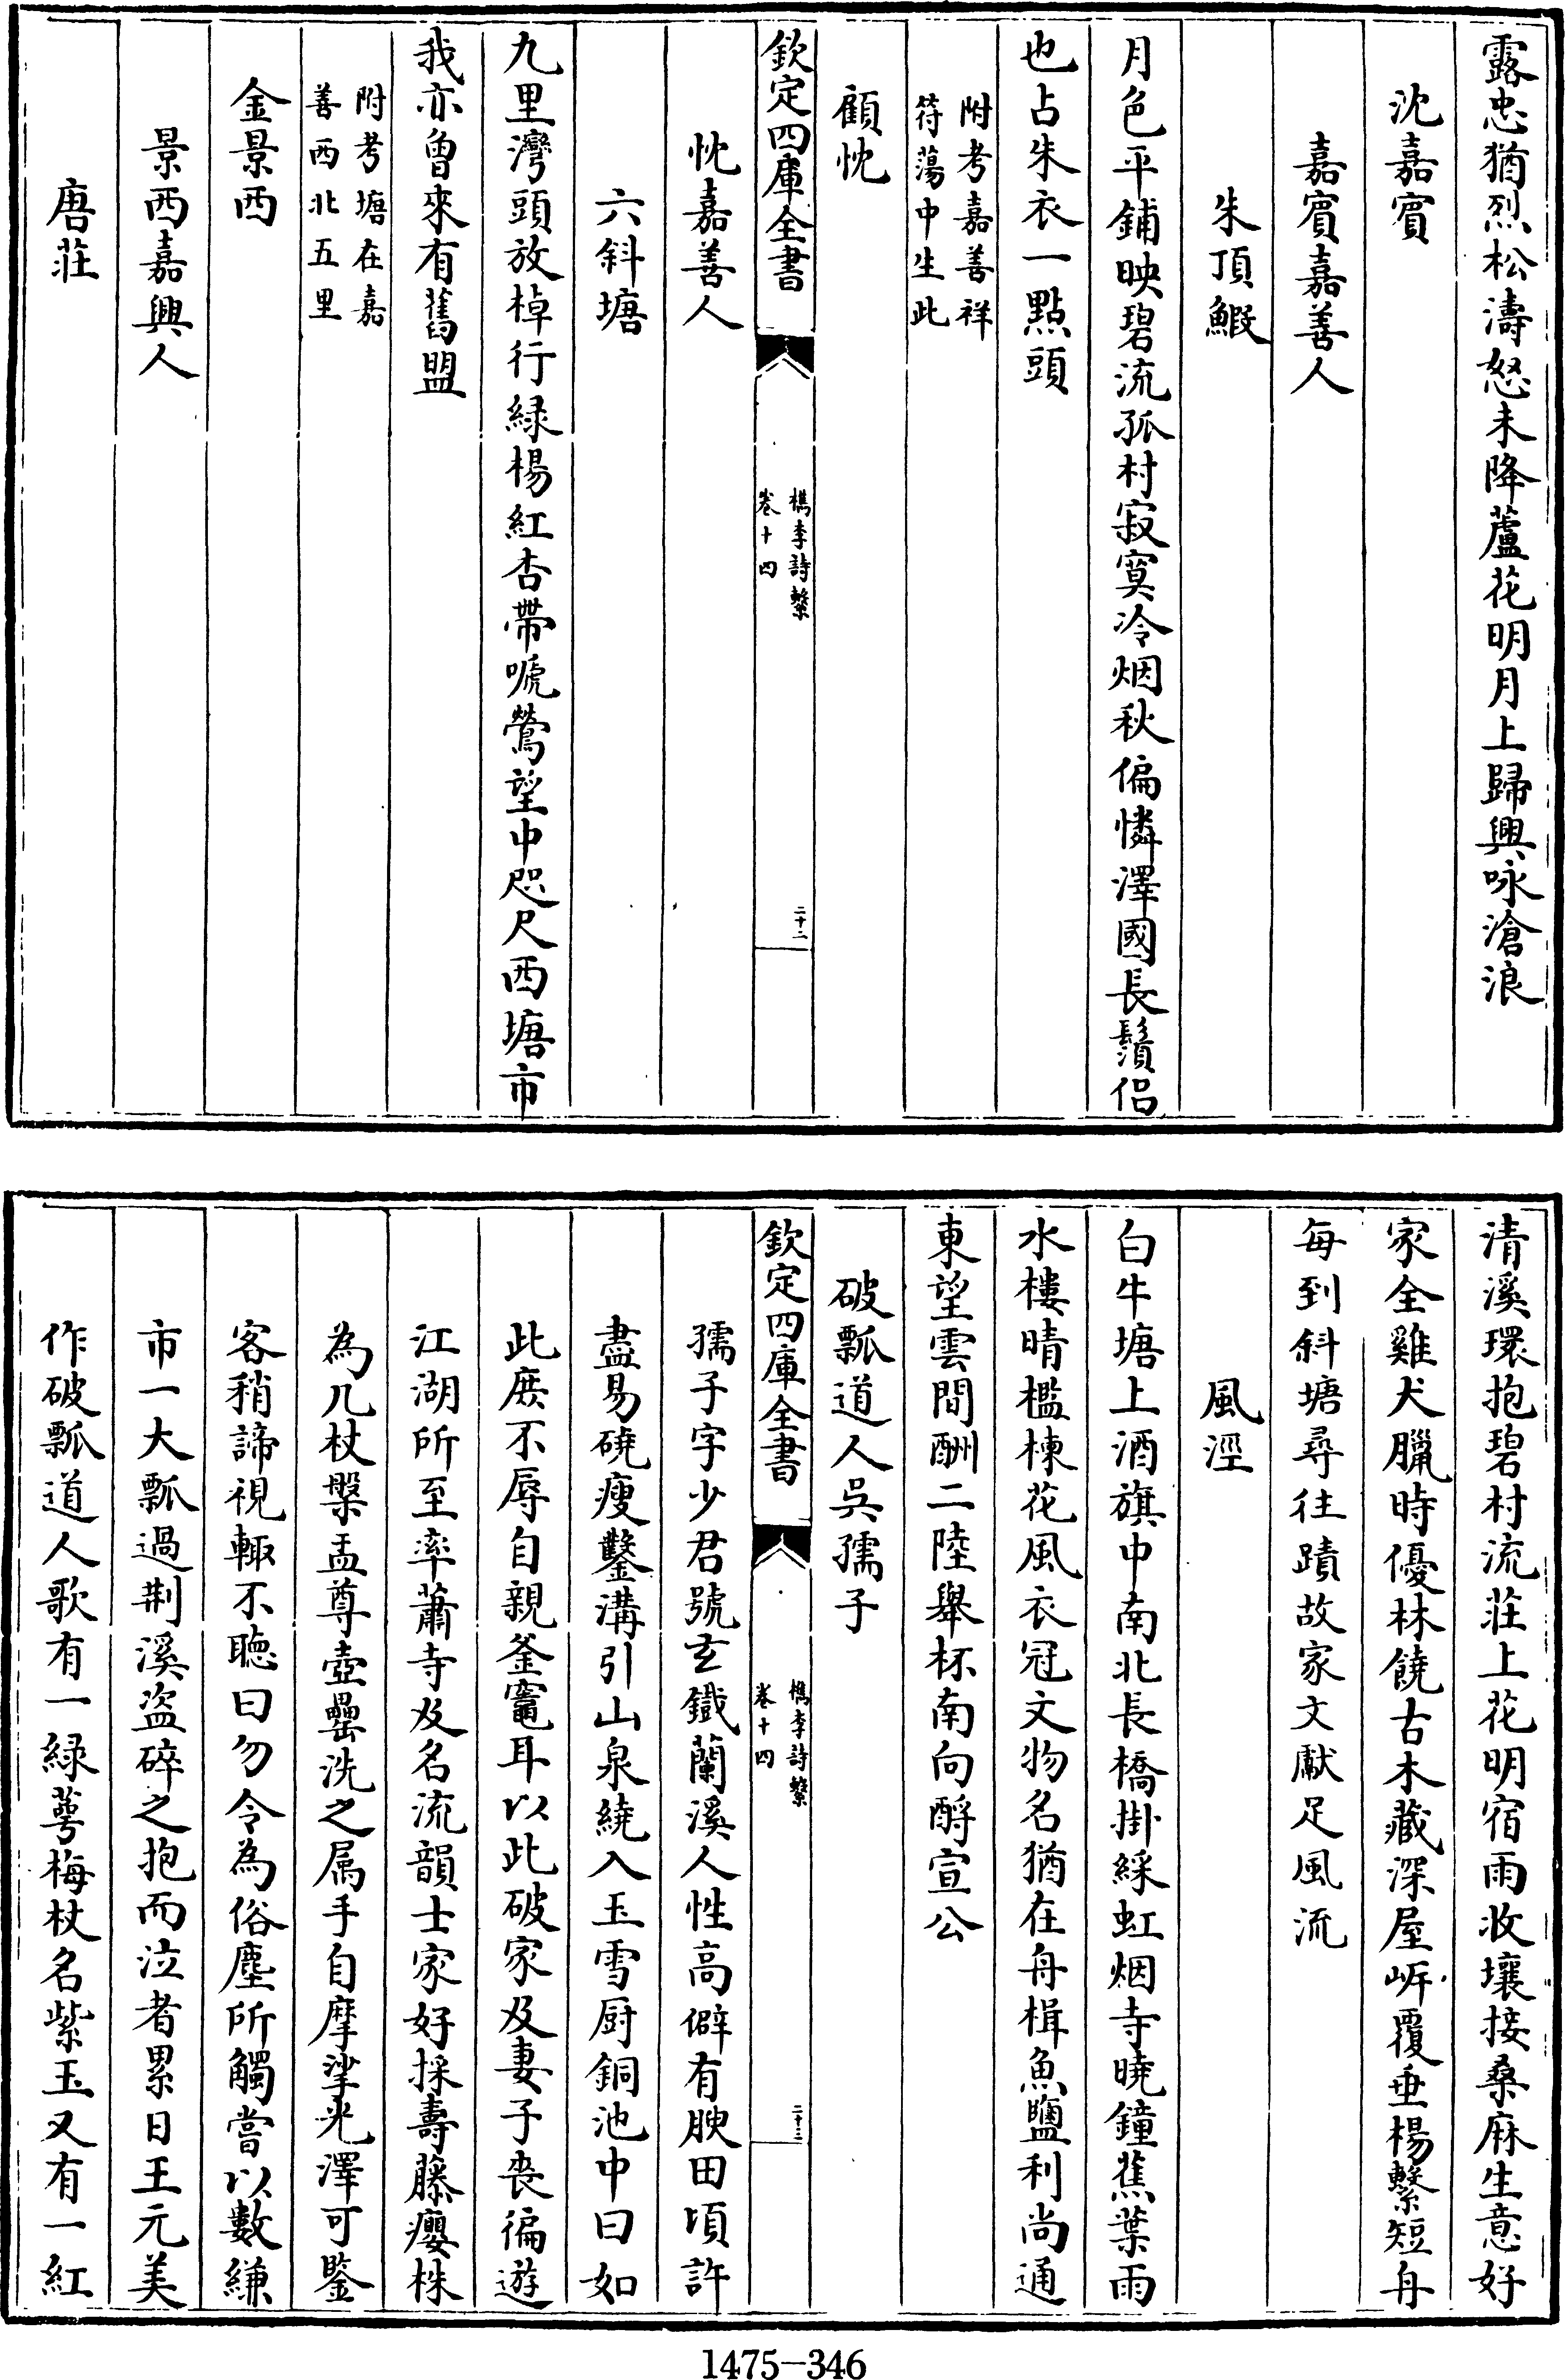 露忠猶烈松濤怒未降蘆花明月上歸興咏滄浪
沈嘉賓
嘉賓嘉善人
朱頂鰕
月色平鋪映碧流孤村寂寞冷烟秋偏憐澤國長鬚侣
也占朱衣一點頭
附考嘉善祥
符蕩中生此
顧忱
欽定四庫全書
檇李詩繫
卷十四
二十二
忱嘉善人
六斜塘
九里灣頭放棹行緑楊紅杏帶嗁鶯望中咫尺西塘市
我亦曾來有舊盟
附考塘在嘉
善西北五里
金景西
景西嘉興人
唐莊
清溪環抱碧村流莊上花明宿雨收壤接桑麻生意好
家全雞犬臘時優林饒古木藏深屋岸覆垂楊繫短舟
每到斜塘尋往蹟故家文獻足風流
風涇
白牛塘上酒旗中南北長橋掛綵虹烟寺曉鐘蕉葉雨
水樓晴檻楝花風衣冠文物名猶在舟楫魚鹽利尚通
東望雲間酬二陸舉杯南向酹宣公
破瓢道人吳孺子
欽定四庫全書
檇李詩繫
卷十四
二十三
孺子字少君號玄鐵蘭溪人性高僻有腴田頃許
盡易磽瘦鑿溝引山泉繞入玉雪厨銅池中曰如
此庶不辱自親釜竈耳以此破家及妻子喪徧遊
江湖所至率蕭寺及名流韻士家好採壽籐癭株
為几杖槃盂尊壺罍洗之属手自摩挲光澤可鑒
客稍諦視輙不聽曰勿令為俗塵所觸嘗以數縑
市一大瓢過荆溪盗碎之抱而泣者累日王元美
作破瓢道人歌有一緑萼梅杖名紫玉又有一紅
1475-346